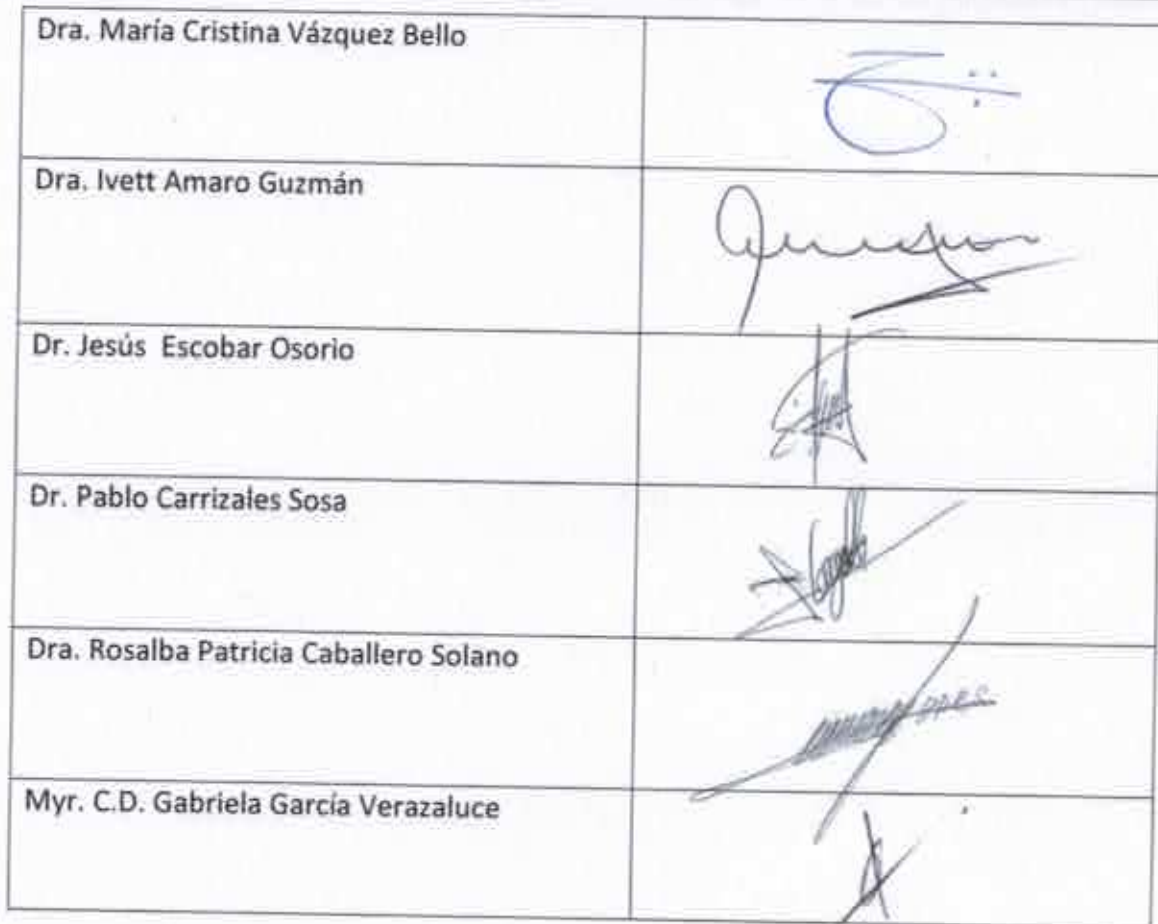 Dra. María Cristina Vázquez Bello
Dra. Ivett Amaro Guzmán
Dr. Jesús Escobar Osorio
Dr. Pablo Carrizales Sosa
Dra. Rosalba Patricia Caballero Solano
Myr. C.D. Gabriela García Verazaluce